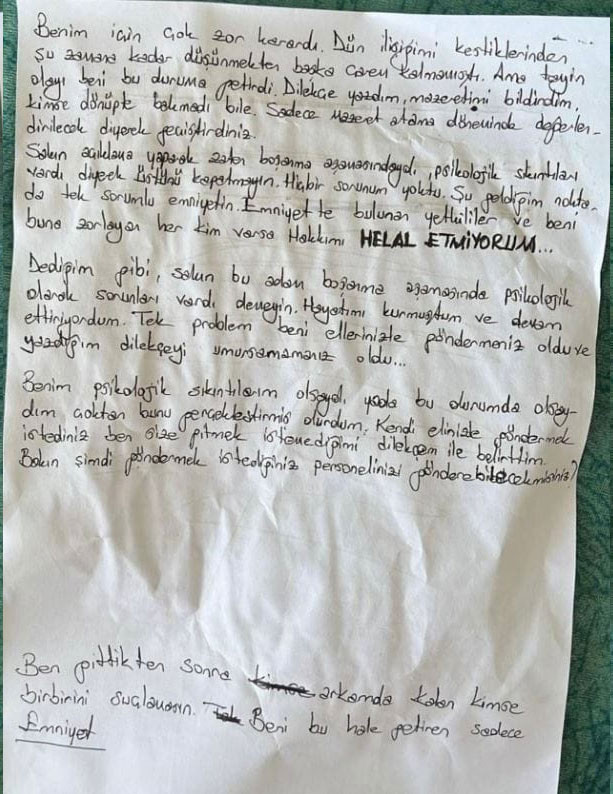 Benim için çok zor karardı. Dün ilişiğimi kestiklerinden
Şu zamana kadar düşünmekten başka çarem kalmamıştı. Ama tayin
olayı beni bu duruma getirdi. Dilekçe yazdım, mazeretimi bildirdim,
kimse dönüpte bakmadı bile. Sadece mazeret atama döneminde değerlen-
dirilecek diyerek geçiştirdiniz.
Sakın açıklama yaparak zaten boşanma aşamasındaydı, psikolojik sıkıntıları
vardı diyerek üstünü kapatmayın. Hiçbir sorunum yoktu. Şu geldiğim nokta-
da tek sorumlu emniyetin. Emniyette bulunan yetkililer ve beni
buna zorlayan her kim varsa Hakkımı HELAL ETMİYORUM...
Dediğim gibi, sakın bu adam boşanma aşamasında psikolojik
olarak sorunları vardı demeyin. Hayatımı kurmuştum ve devam
ettiriyordum. Tek problem beni ellerinizle göndermeniz oldu ve
yazdığım dilekçeyi umursamamanız oldu...
Benim psikolojik sıkıntılarım olsaydı, yada bu durumda olsay-
dım çoktan bunu gerçekleştirmiş olurdum. Kendi elinizle göndermek
istediniz ben size gitmek istemediğimi dilekçem ile belirttim.
Bakın şimdi göndermek istediğiniz personelinizi gönderebilecekmisiniz?
Ben gittikten sonra arkamda kalan kimse
birbirini suçlamasın. Beni bu hale getiren sadece
Emniyet